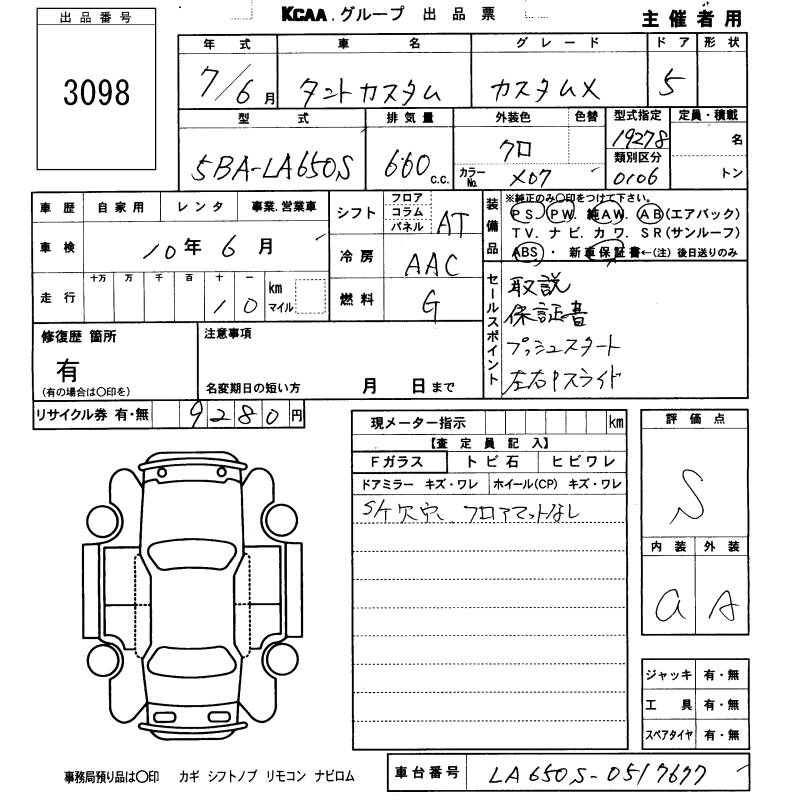 出品番号
3098
KCAA.グループ 出品票
主催者用
年式 車名 グレード ドア 形状
7/6月 タントカスタム カスタムX 5
型式 排気量 外装色 色替 型式指定 定員・積載
5BA-LA650S 660 c.c. クロ 19278 名
カラーNo. X07 類別区分 0106 トン
車歴 自家用 レンタ 事業.営業車
車検 10年6月
走行 十万 万 千 百 十 一
10 km マイル
シフト フロア コラム パネル AT
冷房 AAC
燃料 G
装備品
※純正のみ○印をつけて下さい。
PS. PW. 純AW. AB(エアバック)
TV. ナビ. カワ. SR(サンルーフ)
ABS ・ 新車保証書←(注) 後日送りのみ
セールスポイント
取説
保証書
プッシュスタート
左右Pスライド
修復歴 箇所
有
(有の場合は○印を)
注意事項
名変期日の短い方 月 日まで
リサイクル券 有・無 9280円
現メーター指示 km
【査定員記入】
Fガラス トビ石 ヒビワレ
ドアミラー キズ・ワレ ホイール(CP) キズ・ワレ
S/K欠穴、フロアマットなし
評価点
S
内装 外装
a A
ジャッキ 有・無
工具 有・無
スペアタイヤ 有・無
事務局預り品は○印 カギ シフトノブ リモコン ナビロム
車台番号 LA650S-0517677